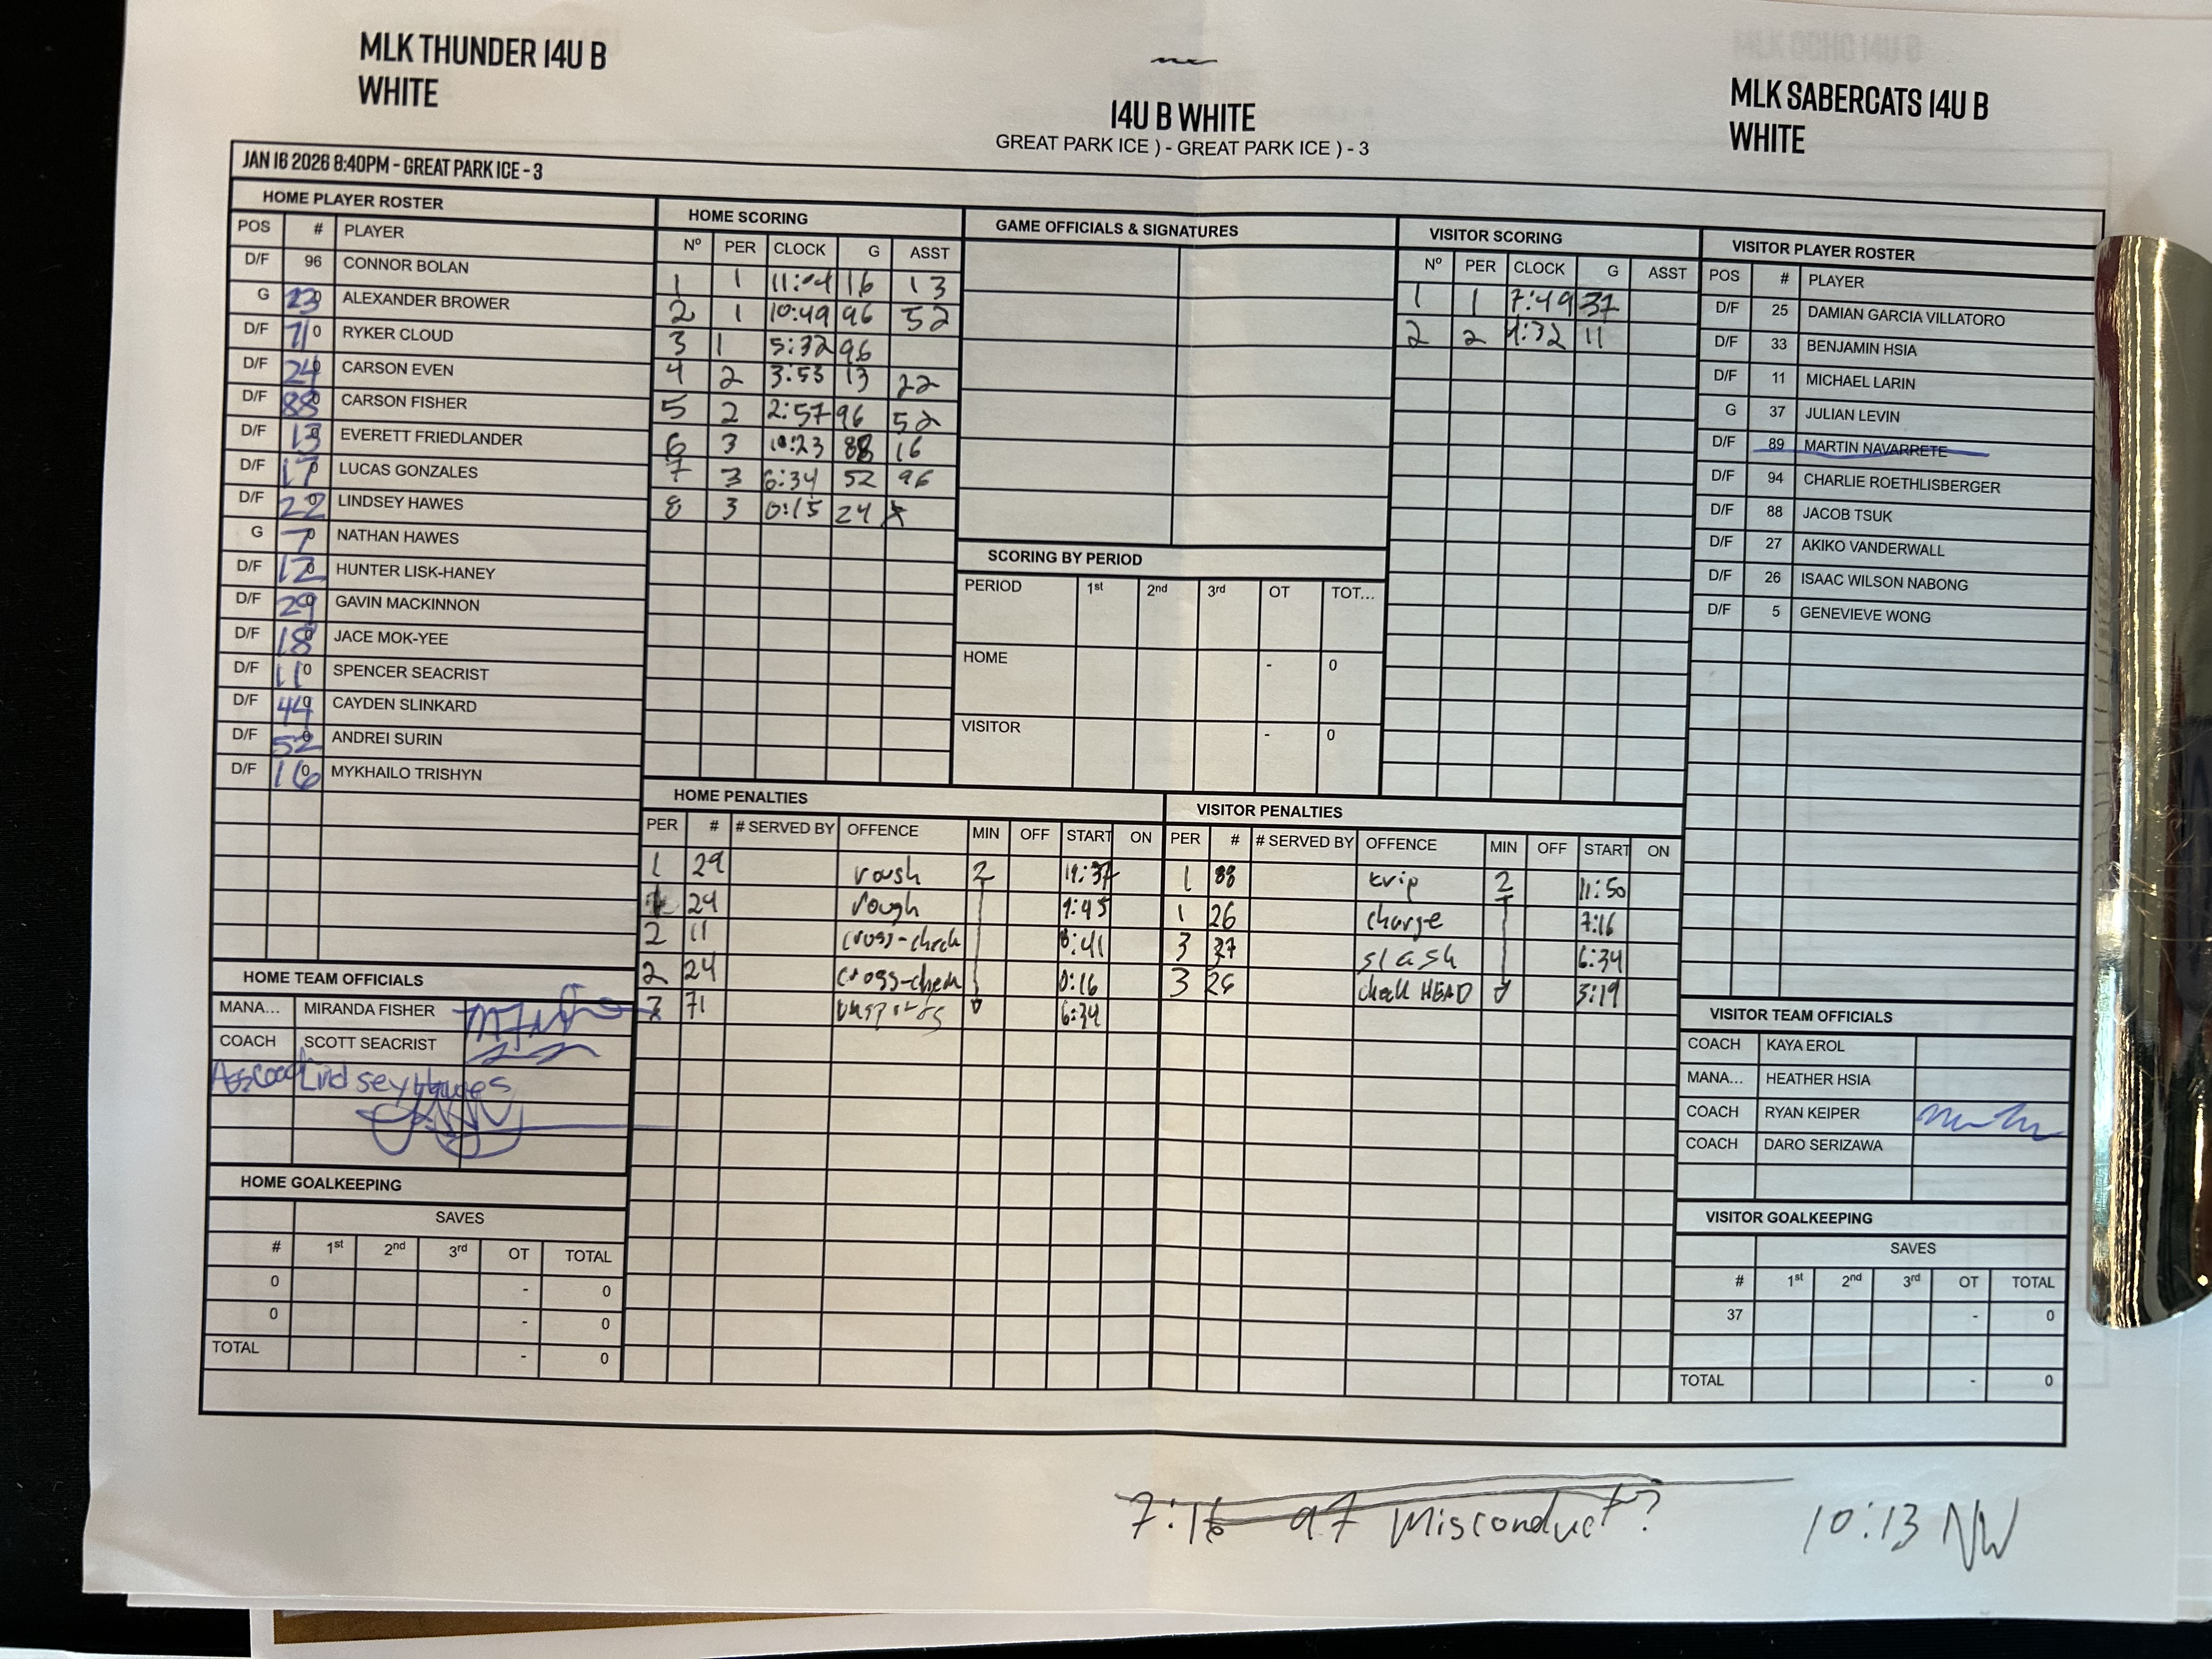 MLK THUNDER 14U B
WHITE
14U B WHITE
GREAT PARK ICE ) - GREAT PARK ICE ) - 3
MLK SABERCATS 14U B
WHITE
JAN 16 2026 8:40PM - GREAT PARK ICE - 3
HOME PLAYER ROSTER
POS # PLAYER
D/F 96 CONNOR BOLAN
G 23 ALEXANDER BROWER
D/F 71 RYKER CLOUD
D/F 24 CARSON EVEN
D/F 88 CARSON FISHER
D/F 13 EVERETT FRIEDLANDER
D/F 17 LUCAS GONZALES
D/F 22 LINDSEY HAWES
G 7 NATHAN HAWES
D/F 12 HUNTER LISK-HANEY
D/F 29 GAVIN MACKINNON
D/F 18 JACE MOK-YEE
D/F 11 SPENCER SEACRIST
D/F 44 CAYDEN SLINKARD
D/F 52 ANDREI SURIN
D/F 16 MYKHAILO TRISHYN
HOME SCORING
Nº PER CLOCK G ASST
1 1 11:04 16 13
2 1 10:49 96 52
3 1 5:32 96
4 2 3:53 13 22
5 2 2:57 96 52
6 3 10:23 88 16
7 3 6:34 52 96
8 3 0:15 24
GAME OFFICIALS & SIGNATURES
SCORING BY PERIOD
PERIOD 1st 2nd 3rd OT TOT...
HOME - 0
VISITOR - 0
VISITOR SCORING
Nº PER CLOCK G ASST
1 1 7:49 37
2 2 1:32 11
VISITOR PLAYER ROSTER
POS # PLAYER
D/F 25 DAMIAN GARCIA VILLATORO
D/F 33 BENJAMIN HSIA
D/F 11 MICHAEL LARIN
G 37 JULIAN LEVIN
D/F 89 MARTIN NAVARRETE
D/F 94 CHARLIE ROETHLISBERGER
D/F 88 JACOB TSUK
D/F 27 AKIKO VANDERWALL
D/F 26 ISAAC WILSON NABONG
D/F 5 GENEVIEVE WONG
HOME PENALTIES
PER # # SERVED BY OFFENCE MIN OFF START ON
1 29 rough 2 11:37
24 rough 1:45
2 11 cross-check 8:41
2 24 cross-check 0:16
3 71 unsports 6:34
VISITOR PENALTIES
PER # # SERVED BY OFFENCE MIN OFF START ON
1 88 trip 2 11:50
1 26 charge 7:16
3 37 slash 6:34
3 26 check HEAD 3:19
HOME TEAM OFFICIALS
MANA... MIRANDA FISHER
COACH SCOTT SEACRIST
Lindsey Hawes
HOME GOALKEEPING
SAVES
# 1st 2nd 3rd OT TOTAL
0 - 0
0 - 0
TOTAL - 0
VISITOR TEAM OFFICIALS
COACH KAYA EROL
MANA... HEATHER HSIA
COACH RYAN KEIPER
COACH DARO SERIZAWA
VISITOR GOALKEEPING
SAVES
# 1st 2nd 3rd OT TOTAL
37 - 0
TOTAL - 0
7:16 97 Misconduct?
10:13 NW